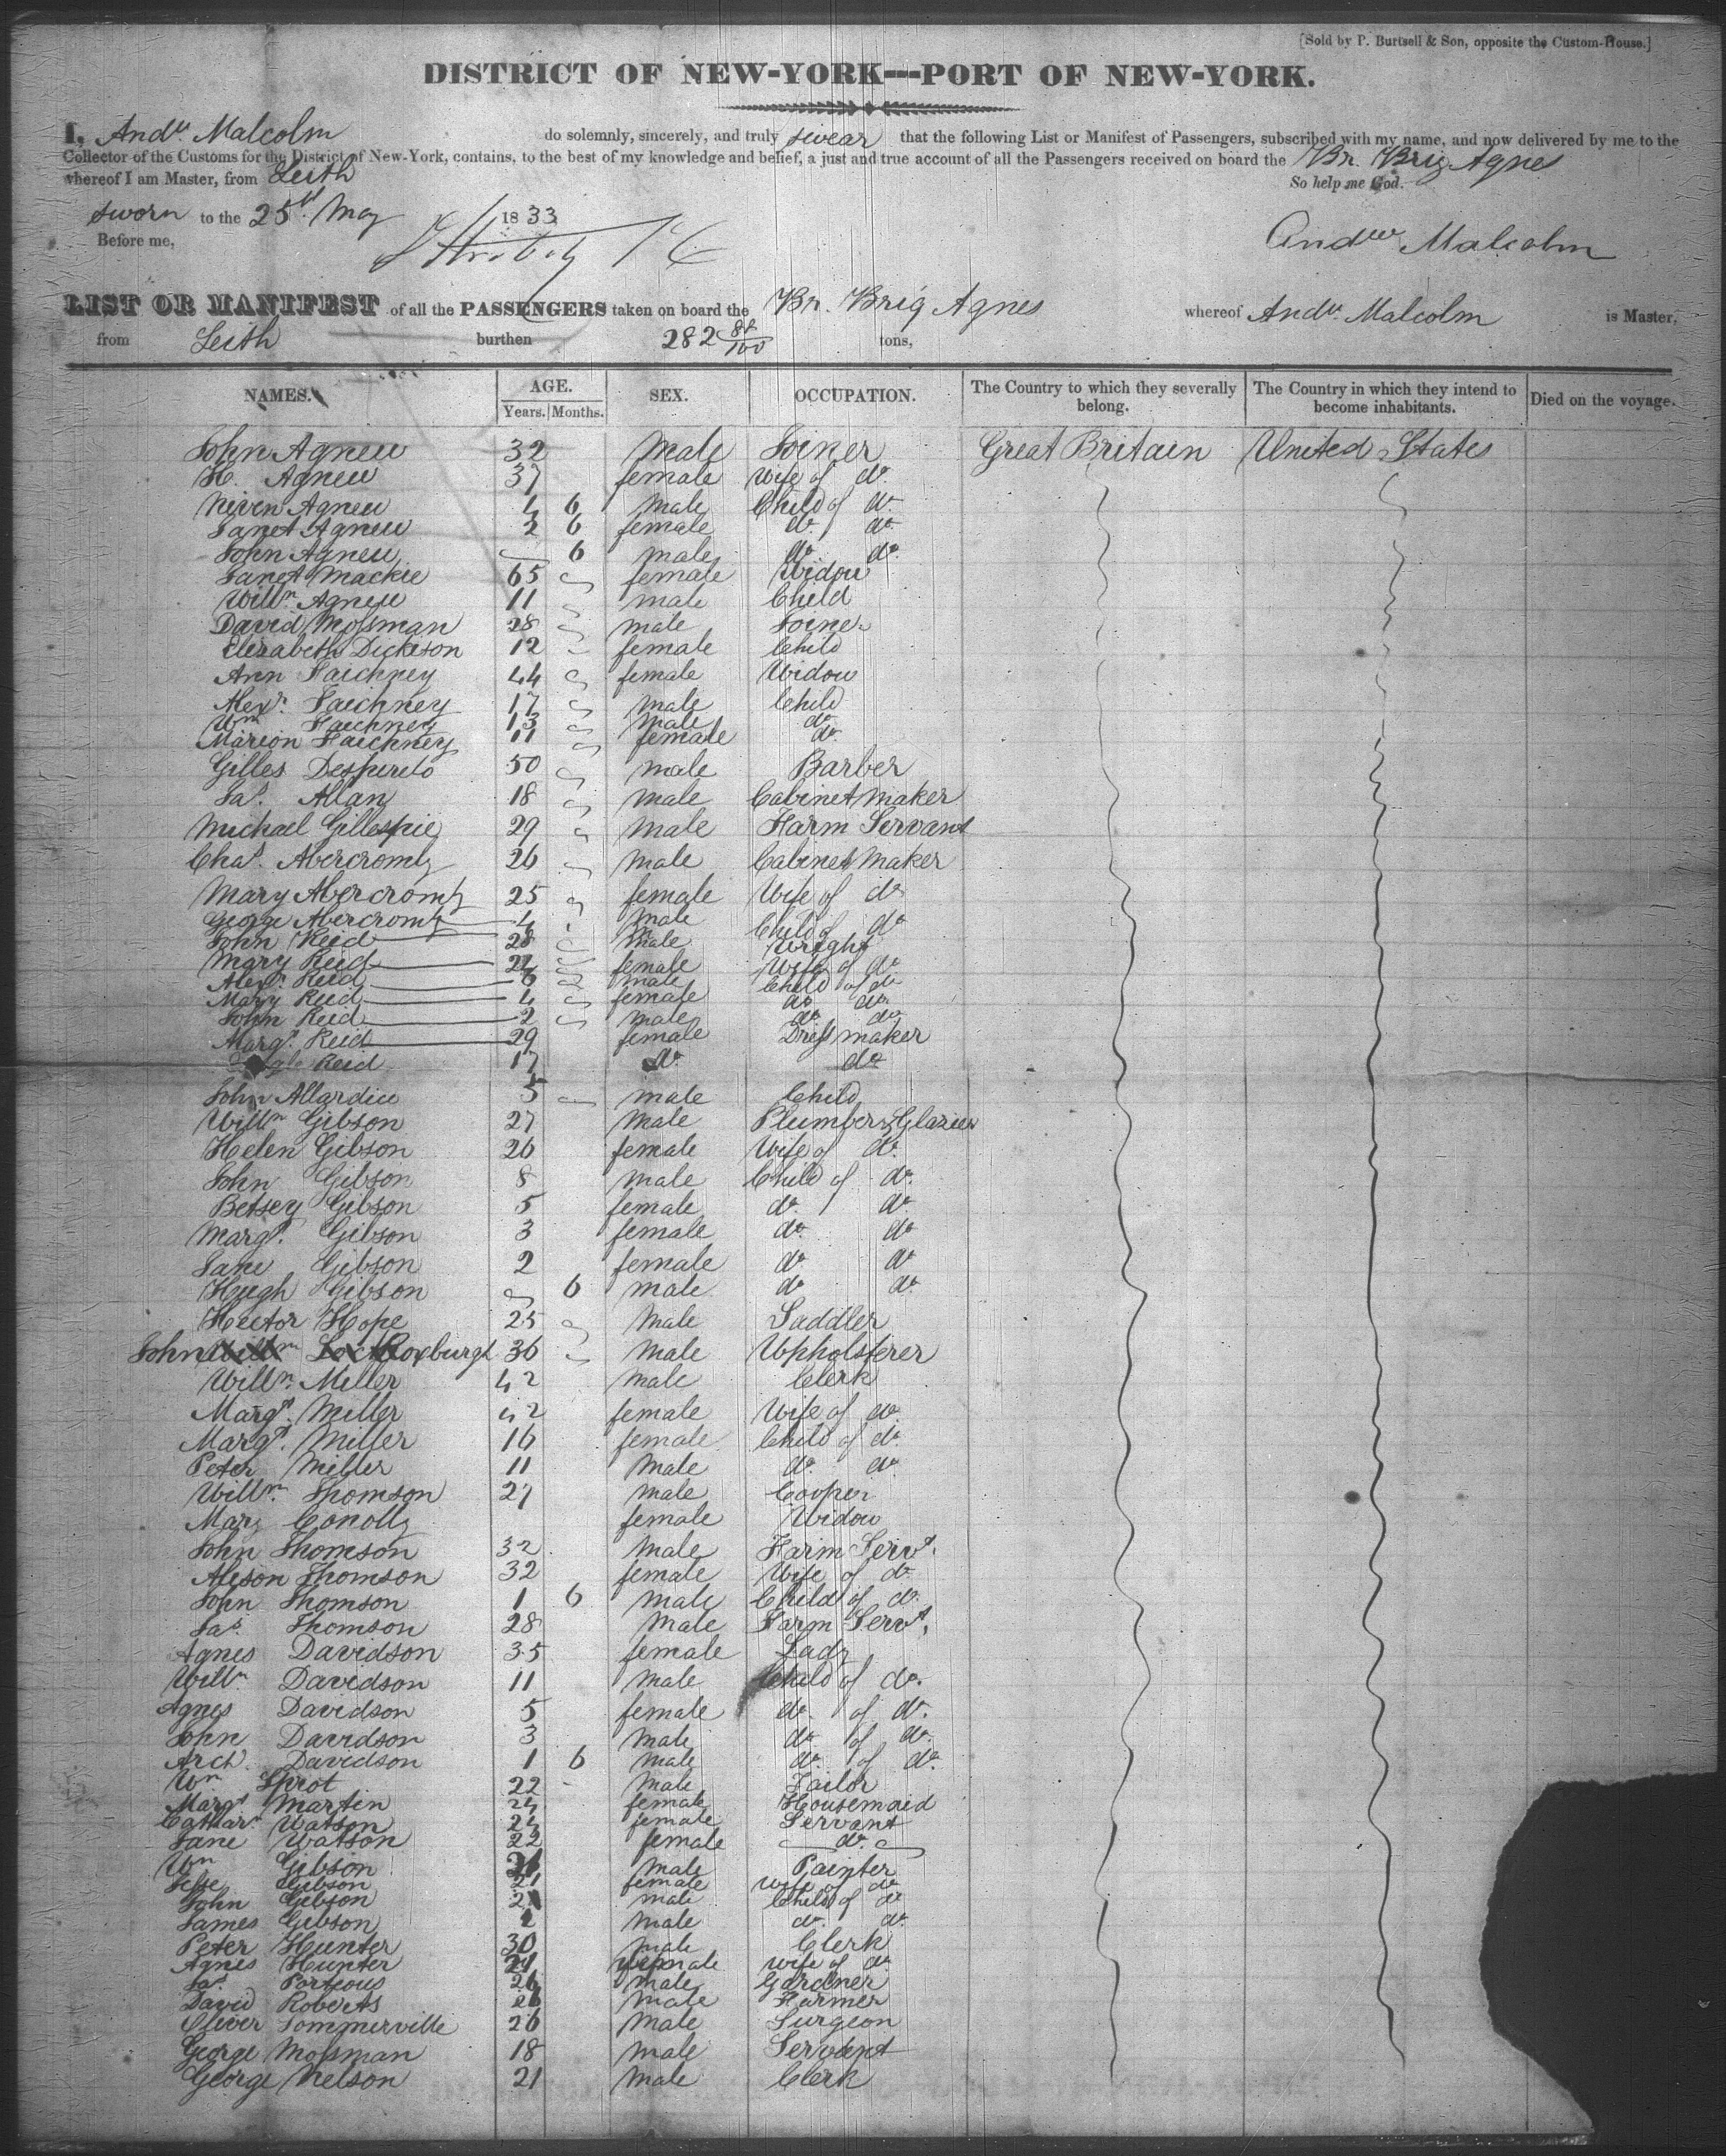 [Sold by P. Burtsell & Son, opposite the Custom-House.]
DISTRICT OF NEW-YORK---PORT OF NEW-YORK.
I, Andw Malcolm do solemnly, sincerely, and truly swear that the following List or Manifest of Passengers, subscribed with my name, and now delivered by me to the
Collector of the Customs for the District of New-York, contains, to the best of my knowledge and belief, a just and true account of all the Passengers received on board the Br. Brig Agnes
whereof I am Master, from Leith So help me God.
sworn to the 25 May 1833
Before me, Andw Malcolm
LIST OR MANIFEST of all the PASSENGERS taken on board the Br. Brig Agnes whereof Andw Malcolm is Master,
from Leith burthen 282 88/100 tons,
NAMES. AGE. Years. Months. SEX. OCCUPATION. The Country to which they severally belong. The Country in which they intend to become inhabitants. Died on the voyage.
John Agnew 32 Male Joiner Great Britain United States
H. Agnew 37 female Wife of do
Niven Agnew 4 6 Male Child of do
Janet Agnew 2 6 female do do
John Agnew 6 male do do
Janet Mackie 65 female Widow
Willm Agnew 11 male Child
David Mossman 28 male Joiner
Elizabeth Dickson 12 female Child
Ann Faichney 44 female Widow
Alexr Faichney 17 male Child
Wm Faichney 13 male do
Marion Faichney 11 female do
Gilles 50 male Barber
Jas. Allan 18 male Cabinet Maker
Michael Gillespie 29 male Farm Servant
Chas. Abercromby 26 male Cabinet Maker
Mary Abercromby 25 female Wife of do
George Abercromby 4 male Child of do
John Reid 28 male Wright
Mary Reid female Wife of do
Alexr Reid 6 male Child of do
Mary Reid 4 female do do
John Reid 2 male do do
Margt Reid 29 female Dress maker
Reid 17 do do
John Allardice 5 male Child
Willm Gibson 27 Male Plumber & Glazier
Helen Gibson 26 female Wife of do
John Gibson 8 male Child of do
Betsey Gibson 5 female do do
Margt. Gibson 3 female do do
Jane Gibson 2 female do do
Hugh Gibson 6 male do do
Hector Hope 25 Male Saddler
John Roxburgh 36 Male Upholsterer
Willm Miller 42 male Clerk
Margt. Miller 42 female Wife of do
Margt. Miller 16 female Child of do
Peter Miller 11 Male do do
Willm. Thomson 27 male Cooper
Mary Conolly female Widow
John Thomson 32 Male Farm Servt.
Alison Thomson 32 female Wife of do
John Thomson 1 6 male Child of do
Jas. Thomson 28 Male Farm Servt.
Agnes Davidson 35 female Lady
Willm Davidson 11 Male Child of do.
Agnes Davidson 5 female do of do.
John Davidson 3 Male do of do.
Arch. Davidson 1 6 male do of do.
Wm Sprot 22 Male Tailor
Margt Martin 24 female Housemaid
Cathar. Watson 24 female Servant
Jane Watson 22 female do
Wm Gibson male Painter
Jesse Gibson 21 female wife of do
John Gibson male Child of do
James Gibson male do do
Peter Hunter 30 male Clerk
Agnes Hunter female wife of do
Jas. Porteous 26 male Gardner
David Roberts 26 male Farmer
Oliver Sommerville 26 Male Surgeon
George Mossman 18 male Servant
George Nelson 21 male Clerk